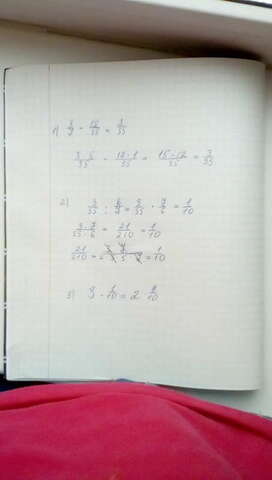 1) 3/7 - 12/35 = 3/35
3·5/35 - 12·1/35 = 15-12/35 = 3/35
2) 3/35 : 6/7 = 3/35 · 7/6 = 1/10
3·7/35·6 = 21/210 = 1/10
21/210 = 1/10
3) 1/10 = 2 9/10